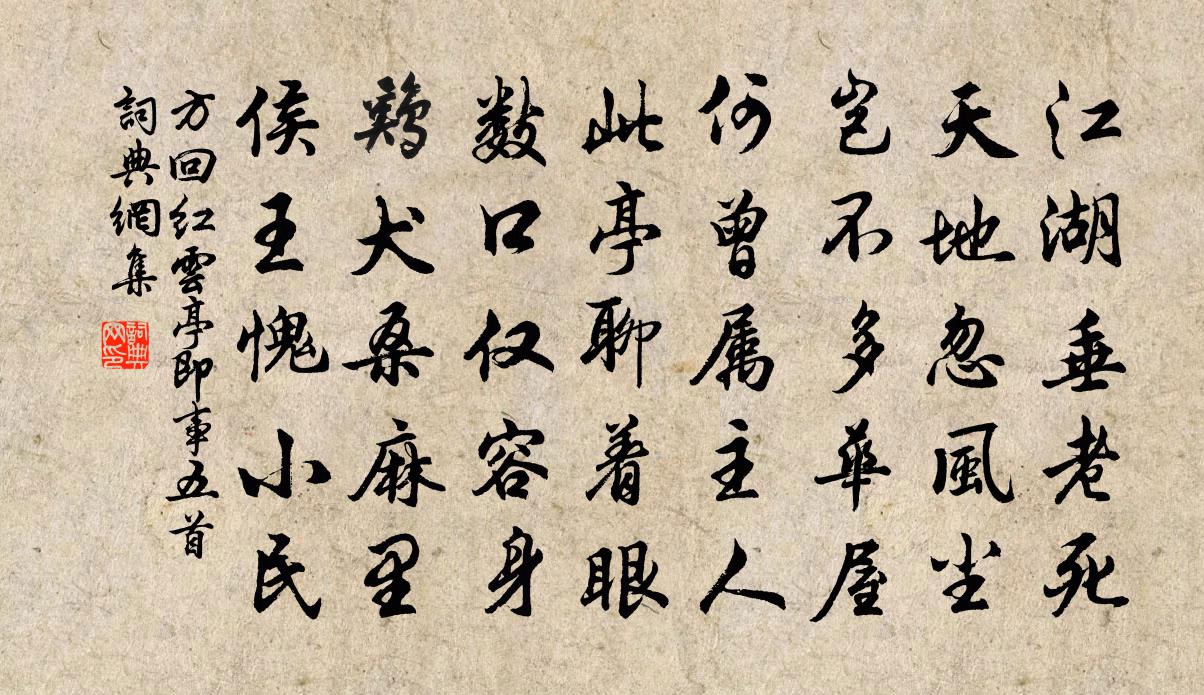 江湖垂老死
天地忽風尘
岂不多華屋
何曾属主人
此亭聊着眼
数口仅容身
鷄犬桑麻里
侯王愧小民
方回紅雲亭即事五首
詞典網集
詞典网印